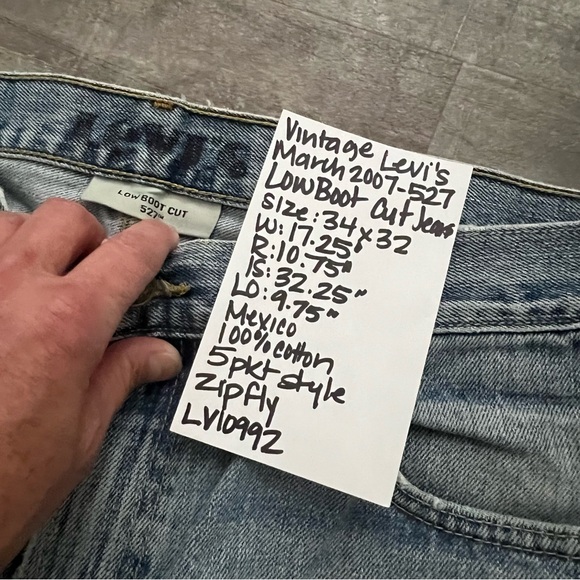 Levi's
LOW BOOT CUT
527™
Vintage Levi's
March 2007-527
Low Boot Cut Jeans
Size: 34x32
W: 17.25"
R: 10.75"
IS: 32.25"
LO: 9.75"
Mexico
100% cotton
5 pkt style
zip fly
LV10992